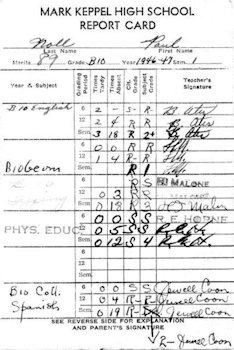 MARK KEPPEL HIGH SCHOOL
REPORT CARD
Noll Paul
Last Name First Name
Merits 89 Grade B10 Year 1946-47 Sem. 1
Year & Subject Grading Period Times Tardy Times Absent Cit. Grade Subj. Grade Teacher's Signature
B10 English 6 2 - S- R
12 4 2 R R
Sem. 3 18 R 2+
6 0 0 R R
12 1 4 R- R
Sem. R 1
B10 Geom
6 R S MALONE
12 0 3 R S
Sem. 0 18 R 3 Malone
6 0 0 S S R. E. HORNE
PHYS. EDUC. 12 0 5 S S
Sem. 0 12 S 4
6
12
Sem.
Bio Coll. 6 0 0 S S Jewell Coon
Spanish 12 0 4 R- R- Jewell Coon
Sem. 0 19 R- Jewell Coon
SEE REVERSE SIDE FOR EXPLANATION
AND PARENT'S SIGNATURE
R- Jewell Coon